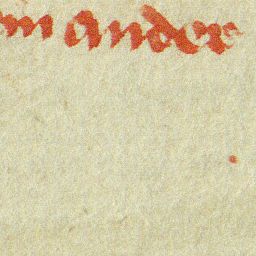 m ander